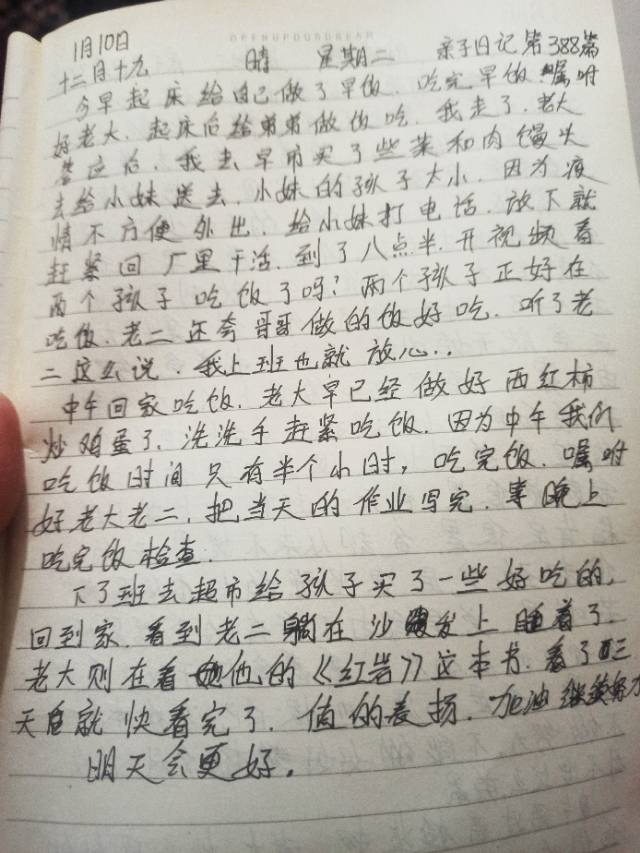 OPENUPOURDREAM
1月10日
十二月十九 晴 星期二 亲子日记第388篇
今早起床给自己做了早饭.吃完早饭嘱咐
好老大.起床后给弟弟做饭吃.我走了.老大
答应后.我去早市买了些菜和肉馒头
去给小妹送去.小妹的孩子太小.因为疫
情不方便外出.给小妹打电话.放下就
赶紧回厂里干活.到了八点半.开视频看
两个孩子吃饭了吗?两个孩子正好在
吃饭.老二还夸哥哥做的饭好吃.听了老
二这么说.我上班也就放心..
中午回家吃饭.老大早已经做好西红柿
炒鸡蛋了.洗洗手赶紧吃饭.因为中午我们
吃饭时间只有半个小时,吃完饭.嘱咐
好老大老二.把当天的作业写完.等晚上
吃完饭检查.
下了班去超市给孩子买了一些好吃的,
回到家.看到老二躺在沙发上睡着了.
老大则在看他的《红岩》这本书.看了两三
天就快看完了.值的表扬.加油继续努力
明天会更好。